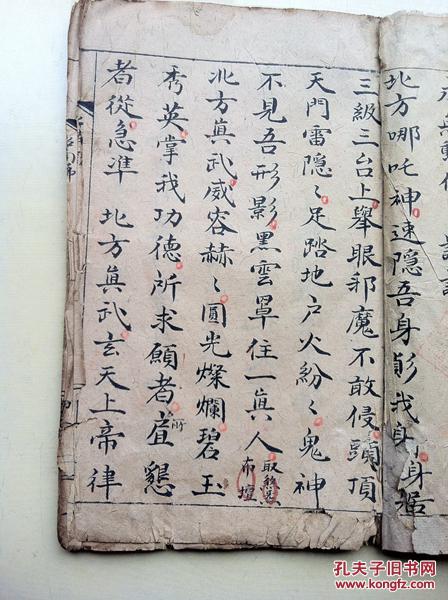 北方哪吒神速隐吾身
三級三台上舉眼邪魔不敢侵頭頂
天門雷隐〻足踏地户火紛〻鬼神
不見吾形影黑雲罩住一真人
布壇
北方真武威容赫〻圓光燦爛碧玉
秀英掌我功德所求願者
所
懇
者從急準 北方真武玄天上帝律
孔夫子旧书网
www.kongfz.com